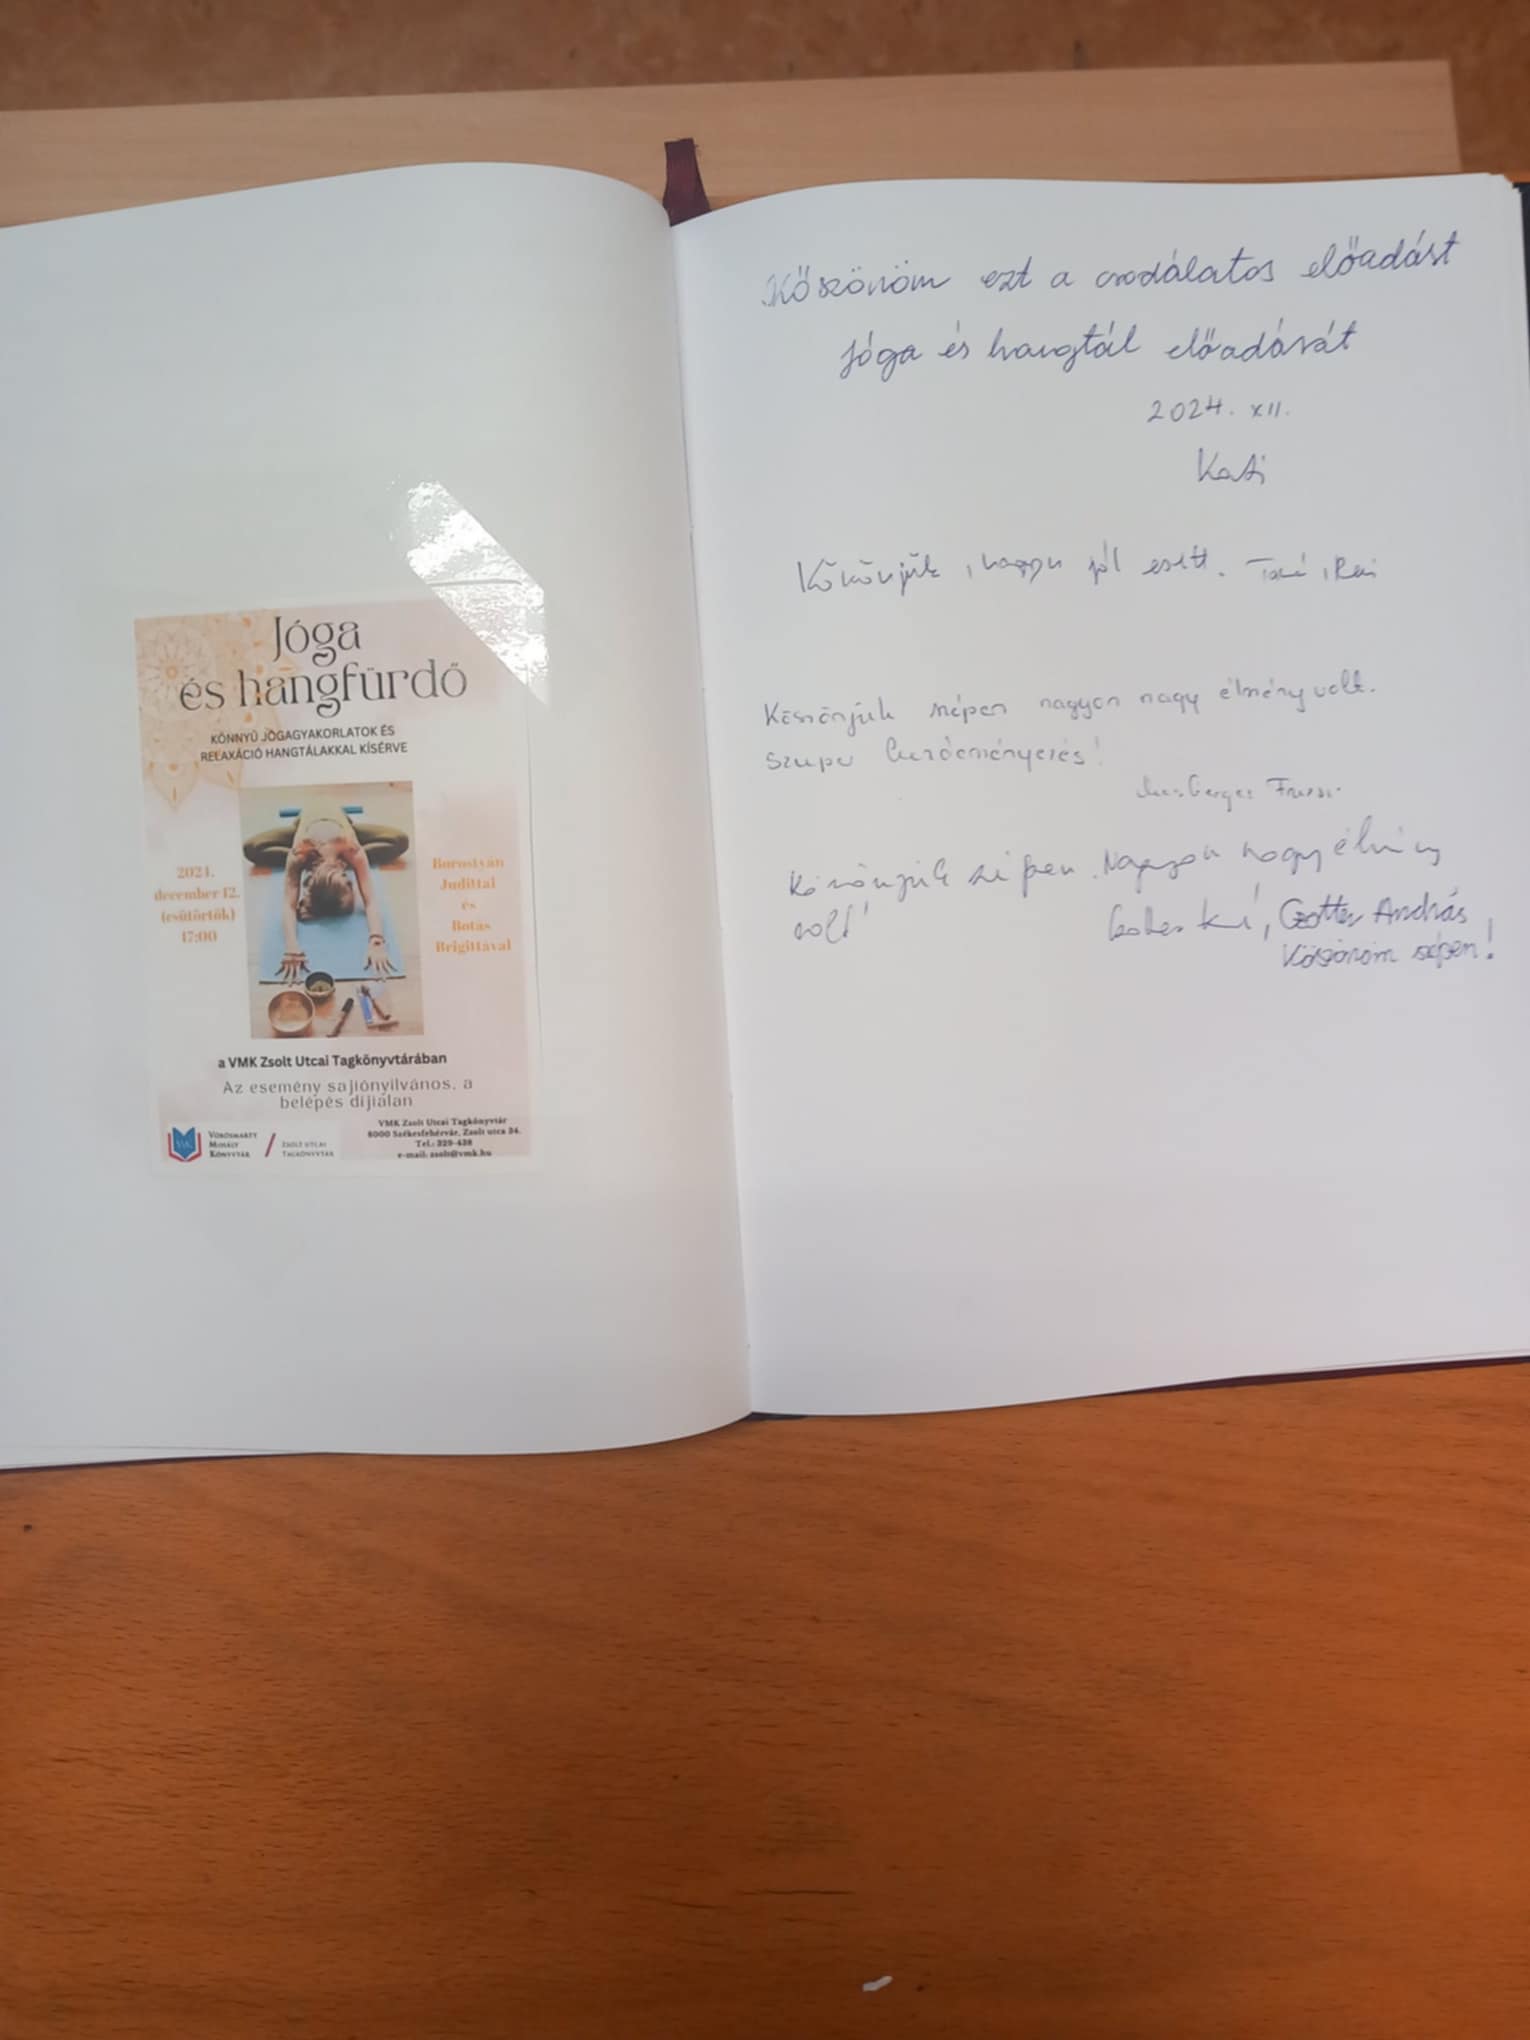 Jóga
és hangfürdő
KÖNNYŰ JÓGAGYAKORLATOK ÉS
RELAXÁCIÓ HANGTÁLAKKAL KÍSÉRVE
2024.
december 12.
(csütörtök)
17:00
Borostyán
Judittal
és
Botás
Brigittával
a VMK Zsolt Utcai Tagkönyvtárában
Az esemény sajtónyilvános, a
belépés díjtalan
VÖRÖSMARTY
MIHÁLY
KÖNYVTÁR
ZSOLT UTCAI
TAGKÖNYVTÁR
VMK Zsolt Utcai Tagkönyvtár
8000 Székesfehérvár, Zsolt utca 34.
Tel.: 329-438
e-mail: zsolt@vmk.hu
Köszönöm ezt a csodálatos előadást
Jóga és hangtál előadását
2024. XII.
Kati
jól esett.
Köszönjük szépen nagyon nagy élmény volt.
Szuper
Köszönjük szépen. Nagyon nagy élmény
volt!
Czotter András
Köszönöm szépen!